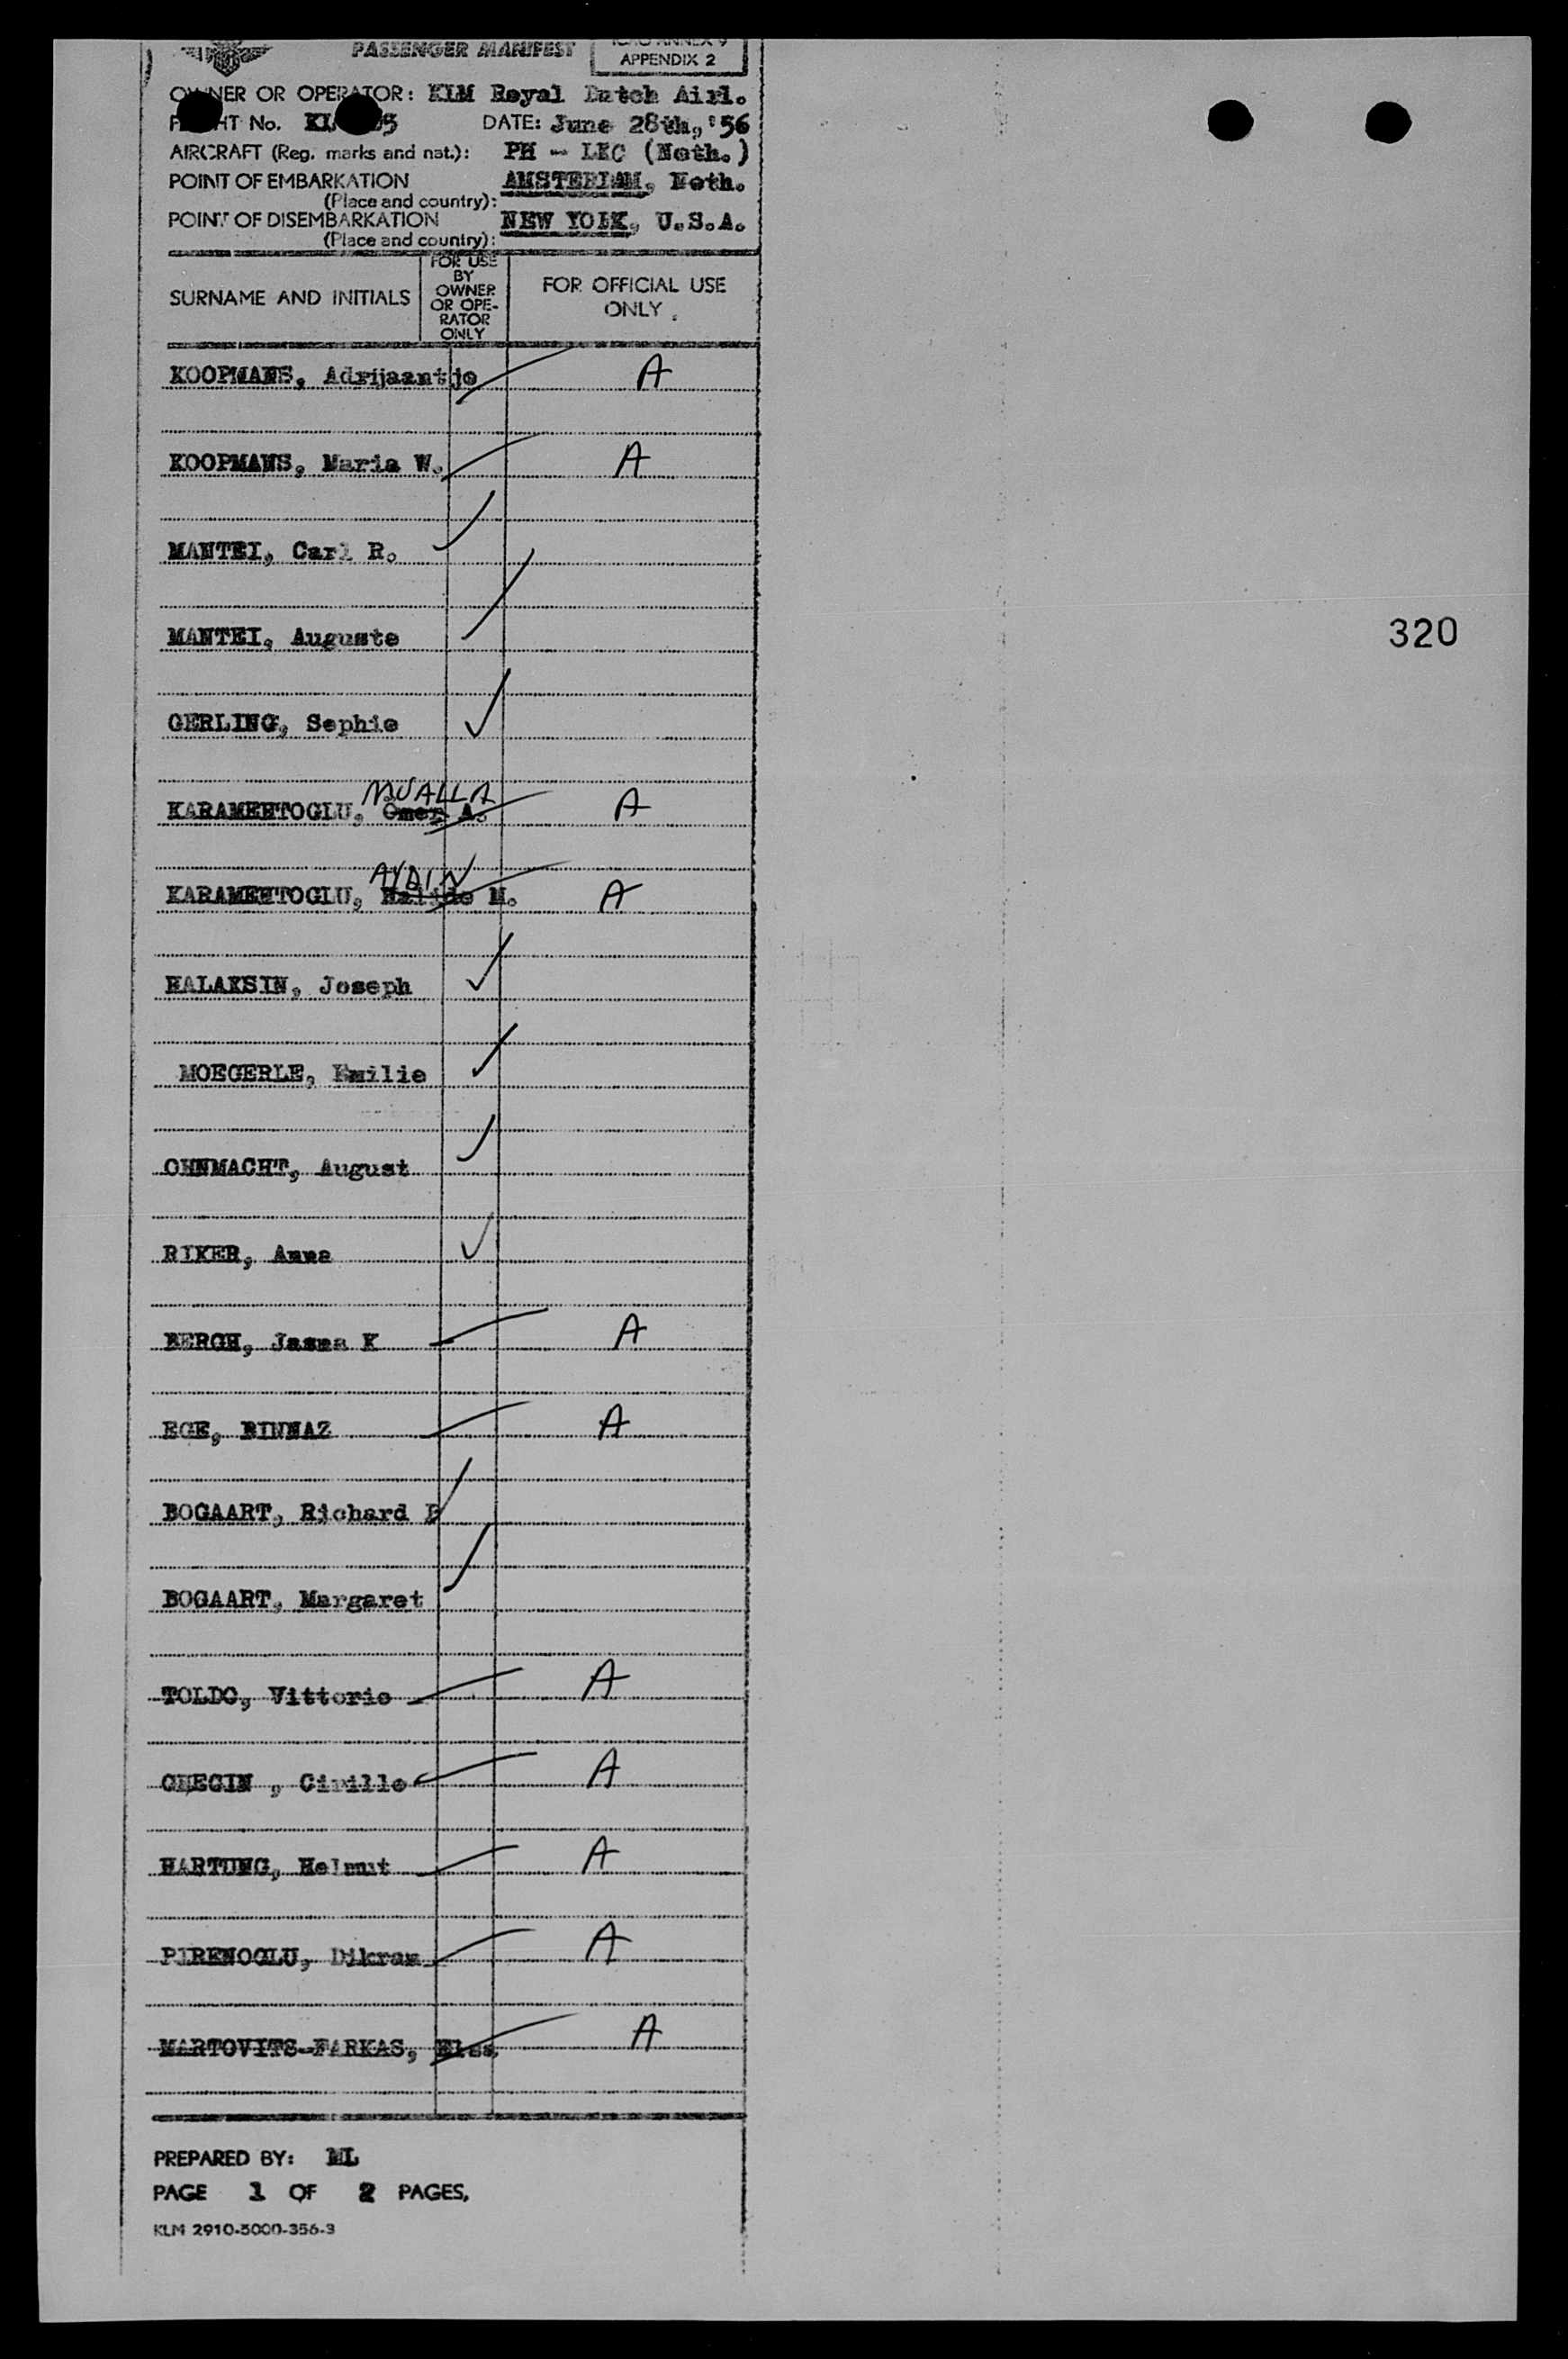 PASSENGER MANIFEST
ICAO ANNEX 9
APPENDIX 2
OWNER OR OPERATOR: KLM Royal Dutch Airl.
FLIGHT No. DATE: June 28th, '56
AIRCRAFT (Reg. marks and nat.): PH - LKC (Neth.)
POINT OF EMBARKATION
(Place and country): AMSTERDAM, Neth.
POINT OF DISEMBARKATION
(Place and country): NEW YORK, U.S.A.
SURNAME AND INITIALS
FOR USE
BY
OWNER
OR OPE-
RATOR
ONLY
FOR OFFICIAL USE
ONLY.
KOOPMANS, Adrijaantje A
KOOPMANS, Maria W. A
MANTEI, Carl R.
MANTEI, Auguste
GERLING, Sophie
MUALLA
KARAMEHTOGLU, Omer A. A
AYDIN
KARAMEHTOGLU, Halide M. A
HALAKSIN, Joseph
MOEGERLE, Emilie
OHNMACHT, August
RIKER, Anna
BERGH, Jasma K A
EGE, BINNAZ A
BOGAART, Richard
BOGAART, Margaret
TOLDO, Vittorio A
A
HARTUNG, Helmut A
PIRENOGLU, Dikran A
MARTOVITS-FARKAS, Elsa A
PREPARED BY: ML
PAGE 1 OF 2 PAGES,
KLM 2910-5000-356-3
320